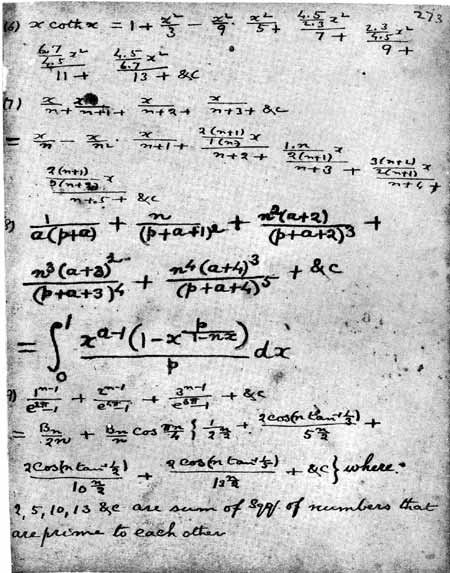 273
(6) x coth x = 1 + x²/3 − x²/9 · x²/5 + (4.5/2.3 x²)/7 + (2.3/4.5 x²)/9 +
(6.7/4.5 x²)/11 + (4.5/6.7 x²)/13 + &c
(7) x/n + x/n+1 + x/n+2 + x/n+3 + &c
= x/n − x/n² · x/n+1 + (2(n+1)/1(n) x)/n+2 + (1.n/2(n+1) x)/n+3 + (3(n+2)/2(n+1) x)/n+4 +
x/n+5 + &c
8) 1/a(p+a) + n/(p+a+1)² + n²(a+2)/(p+a+2)³ +
n³(a+3)²/(p+a+3)⁴ + n⁴(a+4)³/(p+a+4)⁵ + &c
= ∫₀¹ x^(a−1) (1 − x^(p/1−nx))/p dx
9) 1^(n−1)/e^(2π)−1 + 2^(n−1)/e^(4π)−1 + 3^(n−1)/e^(6π)−1 + &c
= Bn/2n + Bn/n cos πn/4 { 1/2^(n/2) + 2cos(n tan⁻¹ 1/3)/5^(n/2) +
2cos(n tan⁻¹ 1/2)/10^(n/2) + 2cos(n tan⁻¹ 1/5)/13^(n/2) + &c } where
2, 5, 10, 13 &c are sum of sqq. of numbers that
are prime to each other